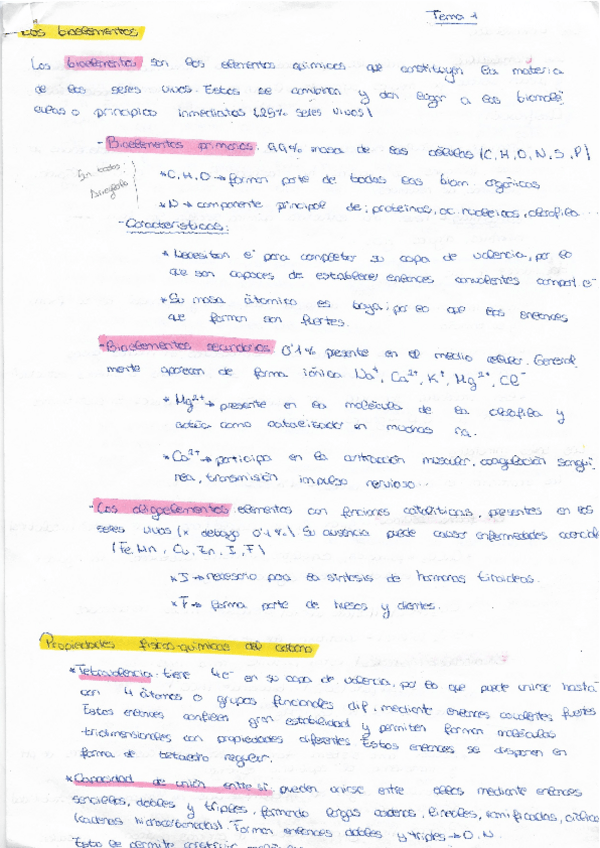 Tema 1
Los bioelementos
Los bioelementos son los elementos químicos que constituyen la materia
de los seres vivos. Estos se combinan y dan lugar a las biomolé
culas o principios inmediatos
- Bioelementos primarios. 99% masa de las células (C, H, O, N, S, P)
En todos:
*C, H, O → forman parte de todas las biom. orgánicas
*N → componente principal de: proteínas, ac. nucleicos, clorofila...
- Características:
* Necesitan e⁻ para completar su capa de valencia, por lo
que son capaces de establecer enlaces covalentes compart e⁻
* Su masa atómica es baja, por lo que los enlaces
que forman son fuertes.
- Bioelementos secundarios 0'1% presente en el medio celular. General
mente aparecen de forma iónica Na⁺, Ca²⁺, K⁺, Mg²⁺, Cl⁻
* Mg²⁺ → presente en la molécula de la clorofila y
actúa como catalizador en muchas rq.
* Ca²⁺ → participa en la contracción muscular, coagulación sanguí
nea, transmisión impulso nervioso...
- Los oligoelementos. elementos con funciones catalíticas, presentes en los
seres vivos (x debajo 0'1%) Su ausencia puede causar enfermedades
(Fe, Mn, Cu, Zn, I, F)
* I → necesario para la síntesis de hormonas tiroideas.
* F → forma parte de huesos y dientes.
Propiedades físico-químicas del carbono
* Tetravalencia. tiene 4e⁻ en su capa de valencia, por lo que puede unirse hasta
con 4 átomos o grupos funcionales dif. mediante enlaces covalentes fuertes
Estos enlaces confieren gran estabilidad y permiten formar moléculas
tridimensionales con propiedades diferentes Estos enlaces se disponen en
forma de tetraedro regular.
* Capacidad de unión entre sí. pueden unirse entre ellos mediante enlaces
sencillos, dobles y triples, formando largas cadenas, lineales, ramificadas,
(cadenas hidrocarbonadas). Forman enlaces dobles y triples → O, N.
Esto le permite construir